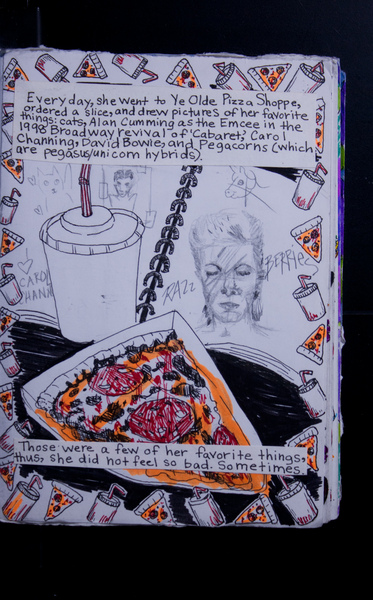 Everyday, she went to Ye Olde Pizza Shoppe,
ordered a slice, and drew pictures of her favorite
things: cats, Alan Cumming as the Emcee in the
1998 Broadway revival of "Cabaret," Carol
Channing, David Bowie, and Pegacorns (which
are pegasus/unicorn hybrids).
RAZZ
BERRIES
CAROL
Those were a few of her favorite things,
thus, she did not feel so bad. Sometimes.